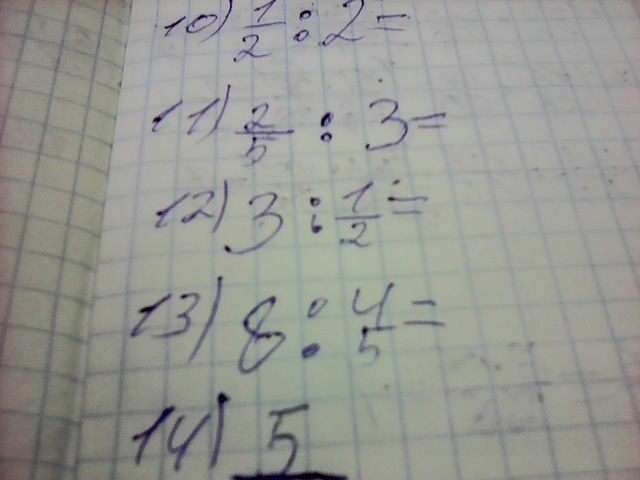 10) 1/2 : 2 =
11) 2/5 : 3 =
12) 3 : 1/2 =
13) 8 : 4/5 =
14) 5